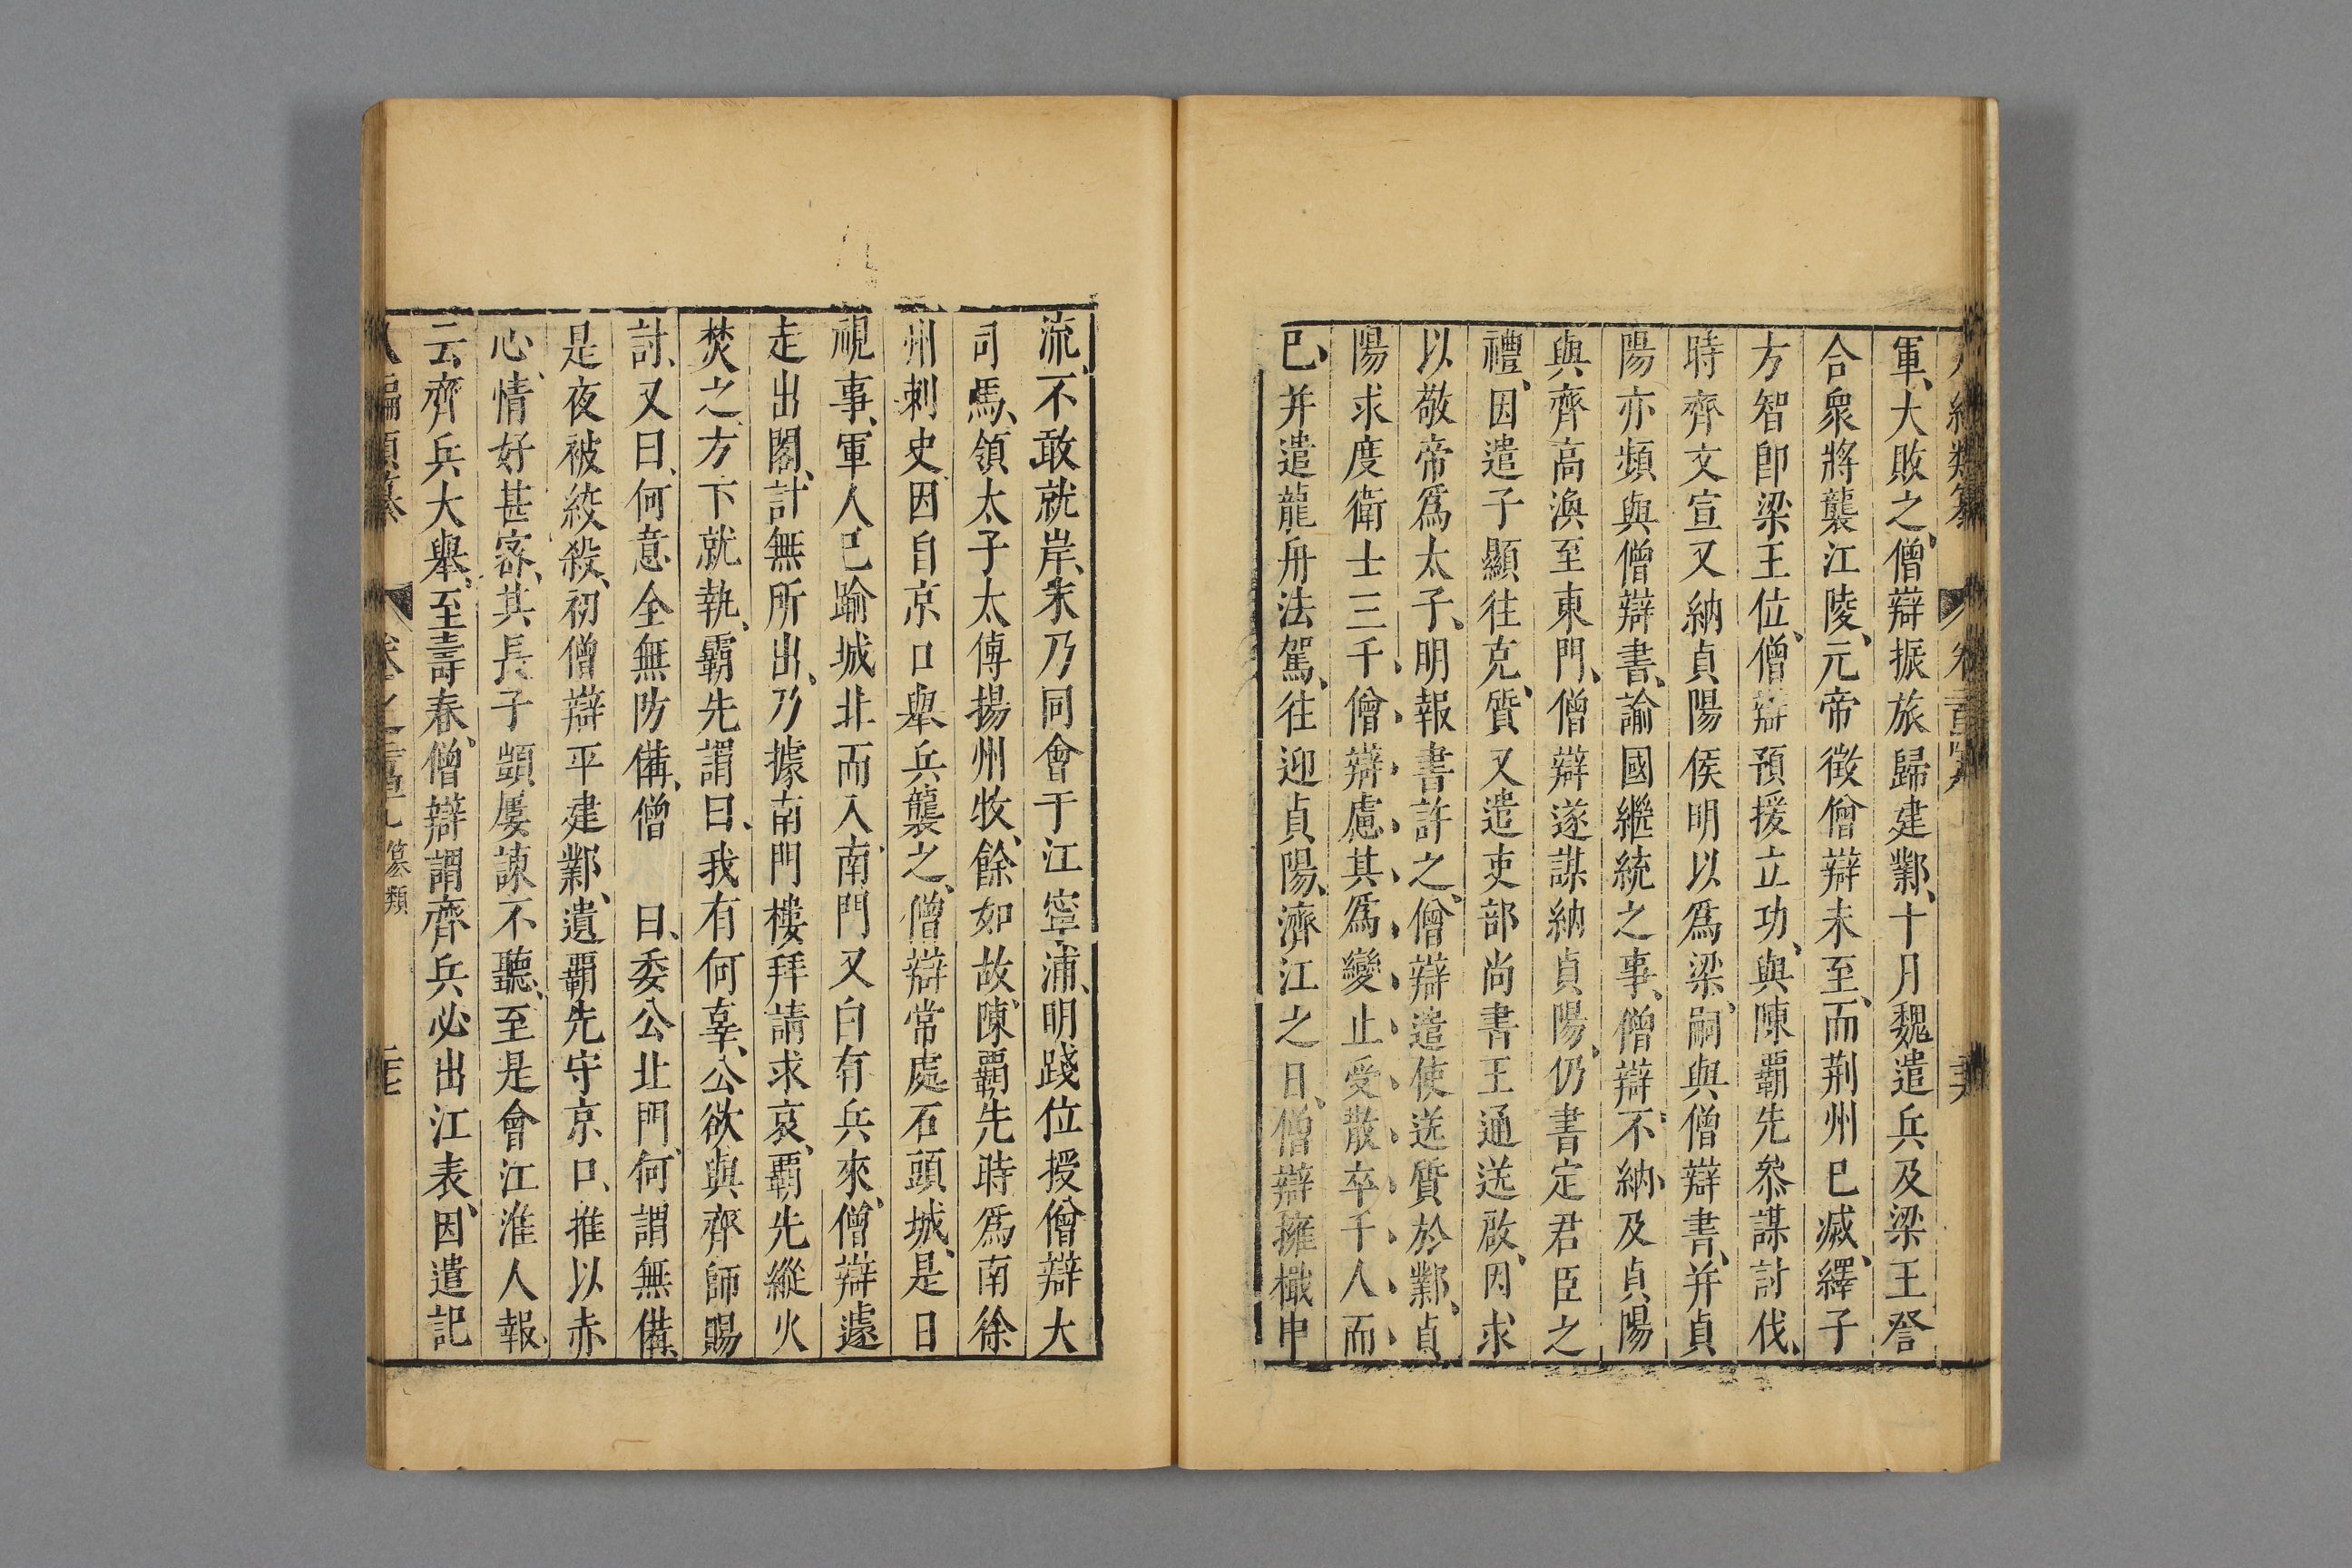 軍、大敗之、僧辯振旅歸建鄴、十月魏遣兵及梁王詧
合衆將襲江陵、元帝徵僧辯未至、而荆州已滅、繹子
方智卽梁王位、僧辯預援立功、與陳霸先叅謀討伐、
時齊文宣又納貞陽侯明以爲梁嗣、與僧辯書、并貞
陽亦頻與僧辯書、諭國繼統之事、僧辯不納、及貞陽
與齊高渙至東門、僧辯遂謀納貞陽、仍書定君臣之
禮、因遣子顯往克質、又遣吏部尚書王通送啟、因求
以敬帝爲太子、明報書許之、僧辯遣使送質於鄴、貞
陽求度衛士三千、僧辯慮其爲變、止受散卒千人而
已、并遣龍舟法駕、往迎貞陽、濟江之日、僧辯擁檝中
流、不敢就岸、末乃同會于江寧浦、明踐位授僧辯大
司馬、領太子太傅揚州牧、餘如故、陳霸先時爲南徐
州刺史、因自京口舉兵襲之、僧辯常處石頭城、是日
視事、軍人已踰城北而入、南門又白有兵來、僧辯遽
走出閣、計無所出、乃據南門樓拜請求哀、霸先縱火
焚之、方下就執、霸先謂曰、我有何辜、公欲與齊師賜
討、又曰、何意全無防備、僧　曰、委公北門、何謂無備、
是夜被絞殺、初僧辯平建鄴、遣霸先守京口、推以赤
心、情好甚密、其長子顗屢諫不聽、至是會江淮人報
云齊兵大舉、至壽春、僧辯謂齊兵必出江表、因遣記
八編類纂　　卷之　　　　篡類